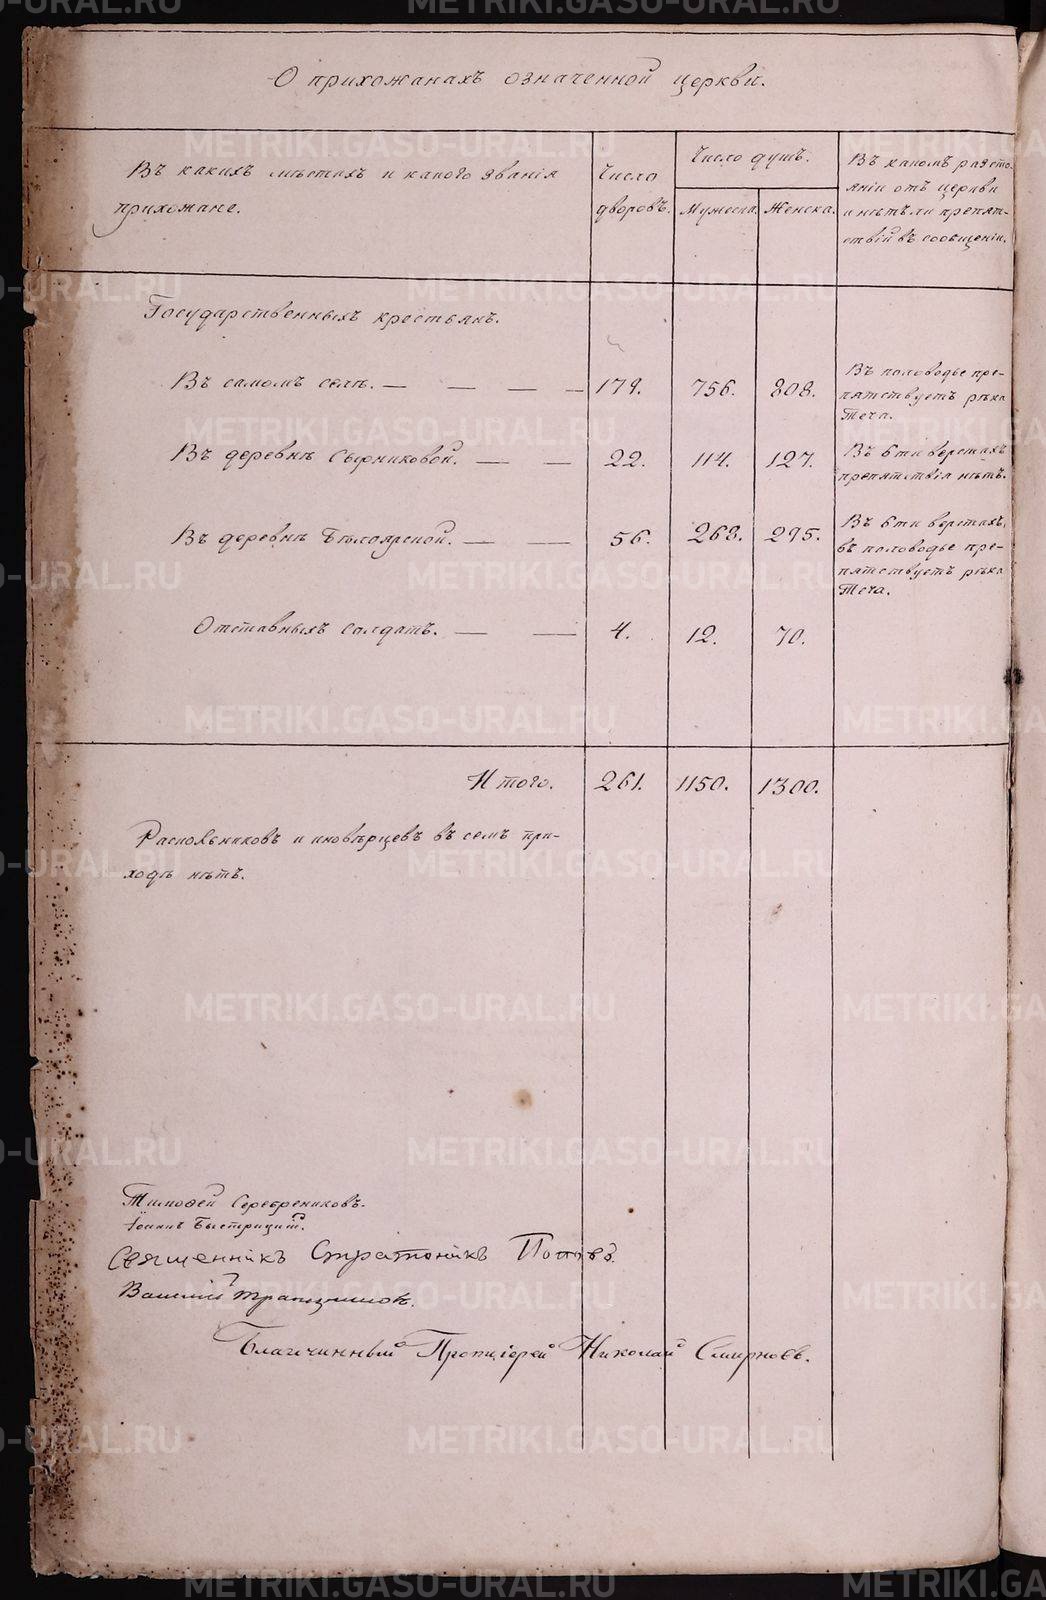 О прихожанахъ означенной церкви.
Въ какихъ мѣстахъ и какого званія
прихожане.
Число
дворовъ.
Число душъ.
Мужеска.
Женска.
Въ какомъ разсто-
яніи отъ церкви
и нѣтъ ли препят-
ствій въ сообщеніи.
Государственныхъ крестьянъ.
Въ самомъ селѣ. — — — — 179. 756. 808.
Въ половодье пре-
пятствуетъ рѣка
Теча.
Въ деревнѣ Сырниковой. — — 22. 114. 127.
Въ 6ти верстахъ
препятствія нѣтъ.
Въ деревнѣ Бѣлоярской. — — 56. 268. 295.
Въ 6ти верстахъ,
въ половодье пре-
пятствуетъ рѣка
Теча.
Отставныхъ солдатъ. — — 4. 12. 70.
Итого. 261. 1150. 1300.
Раскольниковъ и иновѣрцевъ въ семъ при-
ходѣ нѣтъ.
Тимофей Серебрениковъ.
Іоаннъ Быстрицкій.
Священникъ Стратоникъ Поповъ.
Василій
Благочинный Протоіерей Николай Смирновъ.
METRIKI.GASO-URAL.RU